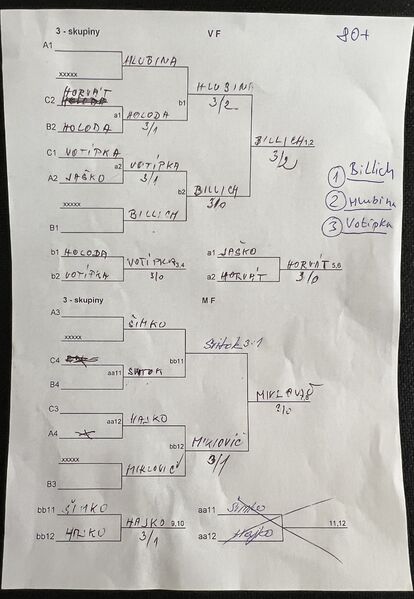 3 - skupiny V F 80+
A1
xxxxx HLUBINA
HORVÁT
C2 a1 HOLODA b1 HLUBINA
3/1 3/2
B2 HOLODA
C1 VOTÍPKA a2 VOTÍPKA BILLICH 1,2
3/1 3/2
A2 JAŠKO
b2 BILLICH
3/0
xxxxx BILLICH
B1
① Billich
② Hlubina
③ Votipka
b1 HOLODA VOTÍPKA 3,4
b2 VOTIPKA 3/0
a1 JAŠKO HORVÁT 5,6
a2 HORVÁT 3/0
3 - skupiny M F
A3
xxxxx ŠIMKO
bb11 3:1
C4 aa11
B4
C3 aa12 HAJKO
A4
bb12 MIKLOVIČ
3/1
xxxxx MIKLOVIČ
B3
bb11 ŠIMKO HAJKO 9,10
bb12 HAJKO 3/1
aa11 Šimko 11,12
aa12 Hajko